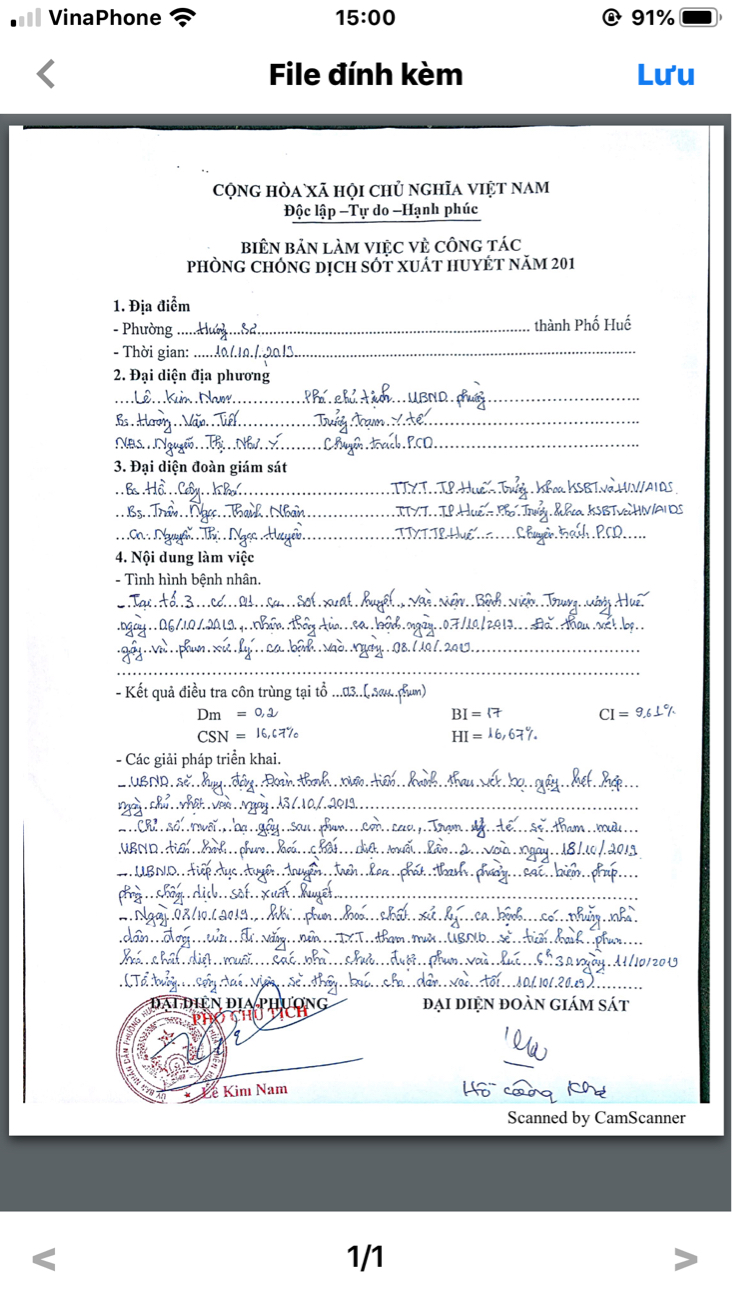 VinaPhone 15:00 91%
< File đính kèm Lưu
CỘNG HÒA XÃ HỘI CHỦ NGHĨA VIỆT NAM
Độc lập –Tự do –Hạnh phúc
BIÊN BẢN LÀM VIỆC VỀ CÔNG TÁC
PHÒNG CHỐNG DỊCH SỐT XUẤT HUYẾT NĂM 201
1. Địa điểm
- Phường .....Hương Sơ.......... thành Phố Huế
- Thời gian: .....10/10/2019..........
2. Đại diện địa phương
....Lê Kim Nam.......... Phó chủ tịch UBND phường
Bs. Hoàng Văn Tiết.......... Trưởng trạm Y tế
NHS. Nguyễn Thị Như Ý.......... Chuyên trách PCD
3. Đại diện đoàn giám sát
..Bs Hồ Công Khá.......... TTYT TP Huế - Trưởng khoa KSBT và HIV/AIDS
..Bs. Trần Ngọc Thành Nhân.......... TTYT TP Huế - Phó Trưởng khoa KSBT và HIV/AIDS
...Cn. Nguyễn Thị Ngọc Huyền.......... TTYT TP Huế - Chuyên trách PCD....
4. Nội dung làm việc
- Tình hình bệnh nhân.
- Tại tổ 3 có 01 ca sốt xuất huyết, vào viện Bệnh viện Trung ương Huế
ngày 06/10/2019, nhận thông tin ca bệnh ngày 07/10/2019 Đã thau vét bọ
gậy và phun xử lý ca bệnh vào ngày 08/10/2019
- Kết quả điều tra côn trùng tại tổ ...03 (sau phun)
Dm = 0,2 BI = 17 CI = 9,61%
CSN = 16,67% HI = 16,67%
- Các giải pháp triển khai.
- UBND sẽ huy động Đoàn thanh niên tiến hành thau vét bọ gậy kết hợp
ngày chủ nhật vào ngày 13/10/2019
- Chỉ số muỗi, bọ gậy sau phun còn cao, Trạm y tế sẽ tham mưu
UBND tiến hành phun hoá chất diệt muỗi lần 2 vào ngày 18/10/2019
- UBND tiếp tục tuyên truyền trên loa phát thanh phường các biện pháp
phòng chống dịch sốt xuất huyết
- Ngày 08/10/2019, khi phun hoá chất xử lý ca bệnh có những nhà
dân đóng cửa đi vắng nên TYT tham mưu UBND sẽ tiến hành phun
hoá chất diệt muỗi các nhà chưa được phun vào lúc 6h30 ngày 11/10/2019
(Tổ trưởng, cộng tác viên sẽ thông báo cho dân vào tối 10/10/2019)
ĐẠI DIỆN ĐỊA PHƯƠNG ĐẠI DIỆN ĐOÀN GIÁM SÁT
PHÓ CHỦ TỊCH
Lê Kim Nam
Hồ Công Khá
Scanned by CamScanner
< 1/1 >